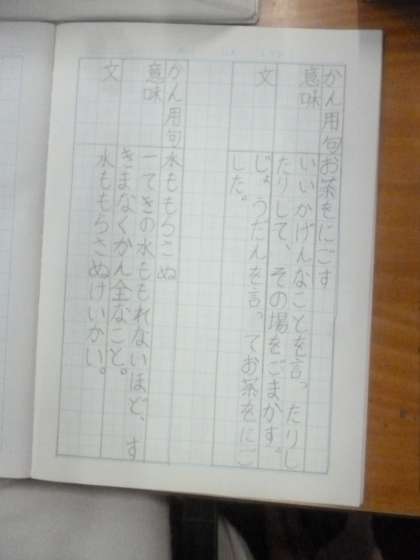 かん用句 お茶をにごす
意味 いいかげんなことを言ったりし
たりして、その場をごまかす。
文 じょうだんを言ってお茶をにご
した。
かん用句 水ももらさぬ
意味 一てきの水ももれないほど、す
きまなくかん全なこと。
文 水ももらさぬけいかい。